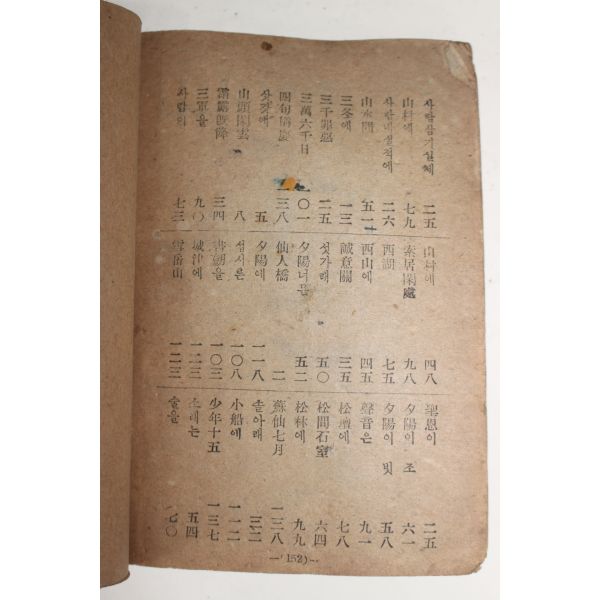 사람삼기설제 二五
山村에 七九
사람네실적에 二六
山水間 五一
三冬에 一三
三千罪惡 二五
三萬六千日 一〇一
四旬盾處 一三八
삿갓에 五
山頭閑雲 八
霜露旣降 三四
三軍을 九〇
사람의 七三
山村에 四八
索居閑處 九八
西湖 七五
西山에 四五
誠意關 三五
섯가래 五〇
夕陽너믄 五二
仙人橋 二
夕陽에 一一八
설서은 一〇八
書劒을 一〇三
城津에 一二三
雪岳山 一二三
聖恩이 二五
夕陽이 조 六一
夕陽이 빗 五八
聲音은 九一
松壇에 七八
松間石室 六四
松林에 九九
蘇仙七月 一三八
솔아래 三二
小船에 一一二
少年十五 一三七
소래는 五四
술을 七〇
—(152)—